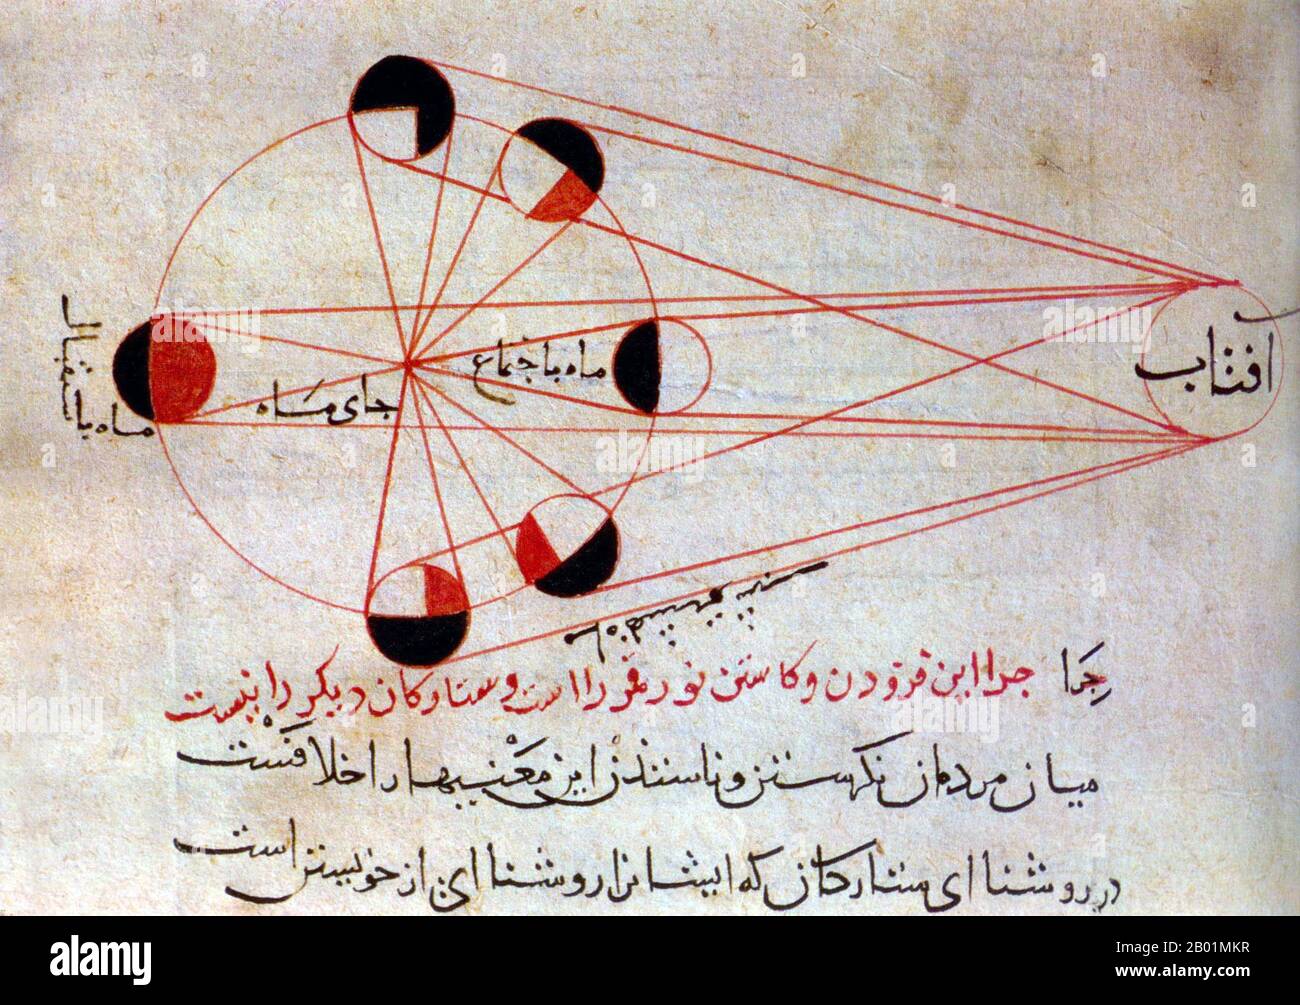 افتاب
ماه باجتماع
جای ماه
ماه باستقبال
چرا چرا این فزودن و کاستن نور قمر را است و ستارکان دیکر را نیست
میان مردمان نکرستن و ناستدن این معنیها را خلافست
در روشنا ای ستارکان که ایشانرا روشنا ای از خویشتن است
a
alamy
Image ID: 2B01MKR
www.alamy.com